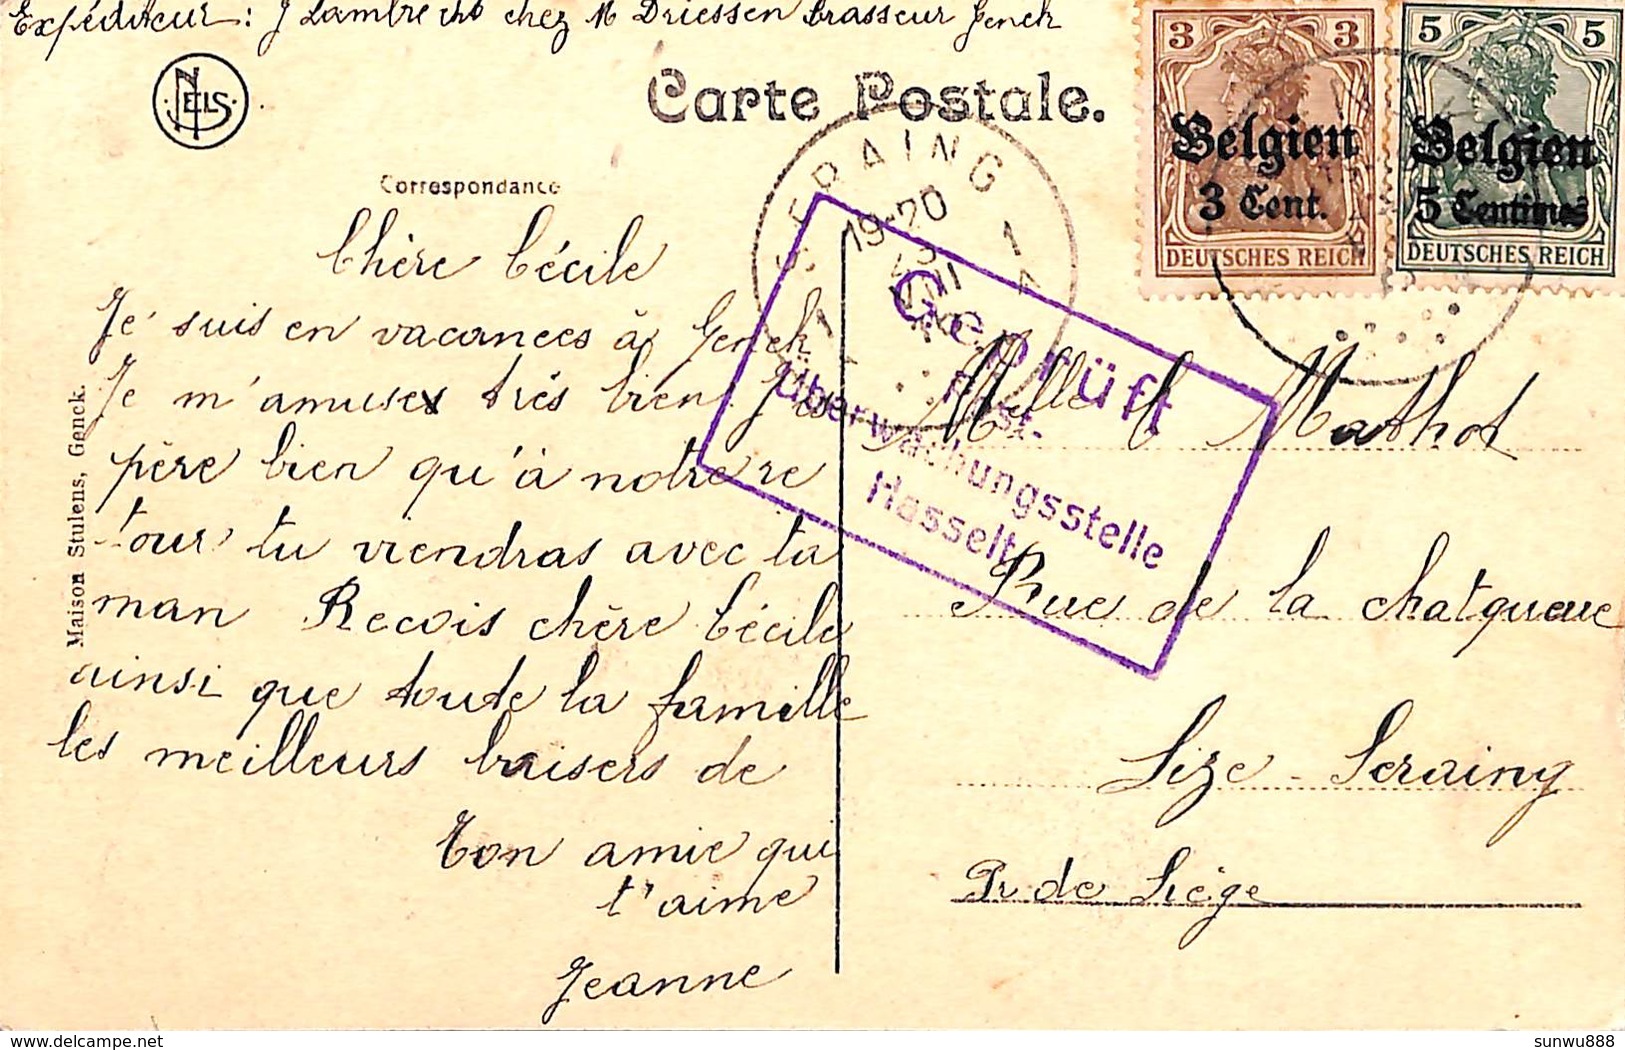 Expéditeur : J Lambrechts chez M Driessen brasseur Genck
NELS
Carte Postale.
Correspondance
Chère Cécile
Je suis en vacances à Genck
Je m'amuses très bien J'es
père bien qu'à notre re
tour tu viendras avec ta
man Recois chère Cécile
ainsi que toute la famille
les meilleurs baisers de
Ton amie qui
t'aime
Jeanne
Maison Stulens, Genck.
3 3
Belgien
3 Cent.
DEUTSCHES REICH
5 5
Belgien
5 Centimes
DEUTSCHES REICH
SERAING 1
19-20
VIII
Geprüft
Post-
Überwachungsstelle
Hasselt
Melle C Mathot
Rue de la chatqueue
Lize - Seraing
Pr de Liège
delcampe.net
sunwu888